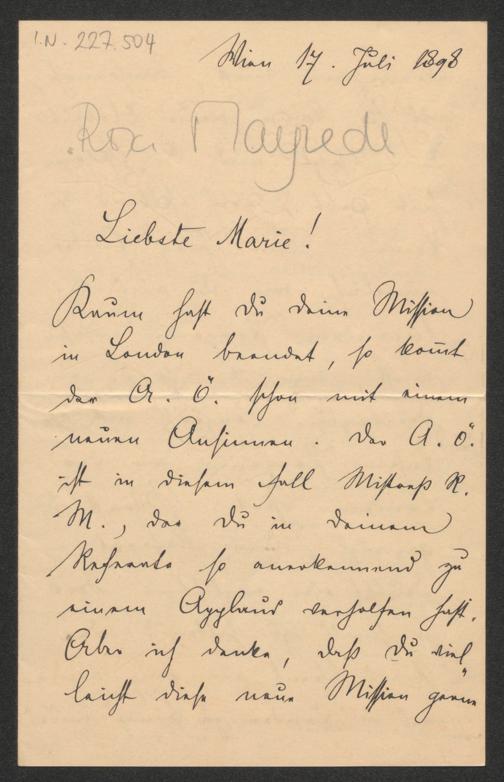 I.N. 227.504
Wien 17. Juli 1898
Rosa Mayrede
Liebste Marie!
Kaum hast Du deine Mission
in London beendet, so kom̄t
der A. Ö. schon mit einem
neuen Ansinnen. Der A. Ö.
ist in diesem Fall Mistreß R.
M., der Du in deinem
Referate so anerkennend zu
einem Applaus verholfen hast.
Aber ich denke, daß Du viel„
leicht diese neue Mission gerne